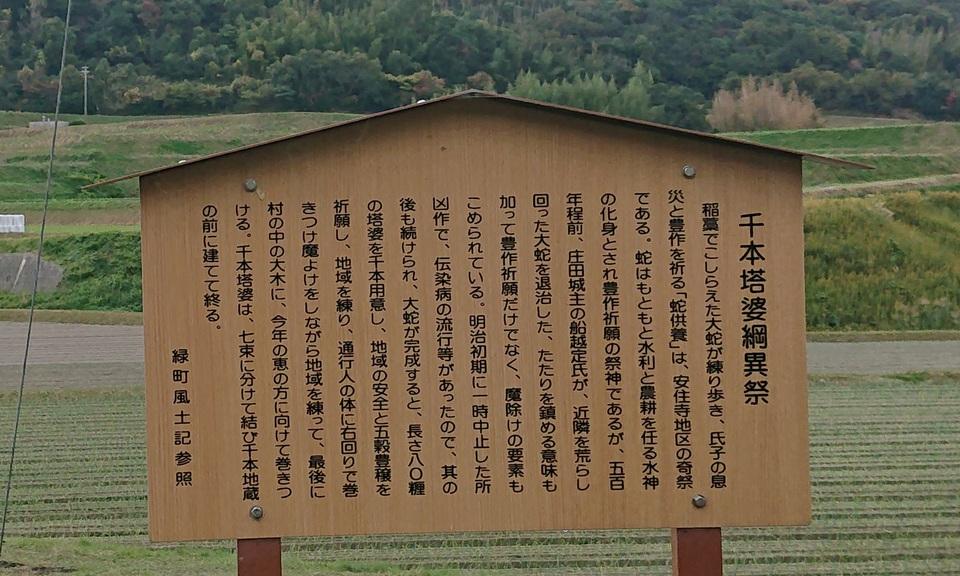 千本塔婆綱異祭
稲藁でこしらえた大蛇が練り歩き、氏子の息
災と豊作を祈る「蛇供養」は、安住寺地区の奇祭
である。蛇はもともと水利と農耕を任る水神
の化身とされ豊作祈願の祭神であるが、五百
年程前、庄田城主の船越定氏が、近隣を荒らし
回った大蛇を退治した、たたりを鎮める意味も
加って豊作祈願だけでなく、魔除けの要素も
こめられている。明治初期に一時中止した所
凶作で、伝染病の流行等があったので、其の
後も続けられ、大蛇が完成すると、長さ八〇糎
の塔婆を千本用意し、地域の安全と五穀豊穣を
祈願し、地域を練り、通行人の体に右回りで巻
きつけ魔よけをしながら地域を練って、最後に
村の中の大木に、今年の恵の方に向けて巻きつ
ける。千本塔婆は、七束に分けて結び千本地蔵
の前に建てて終る。
緑町風土記参照